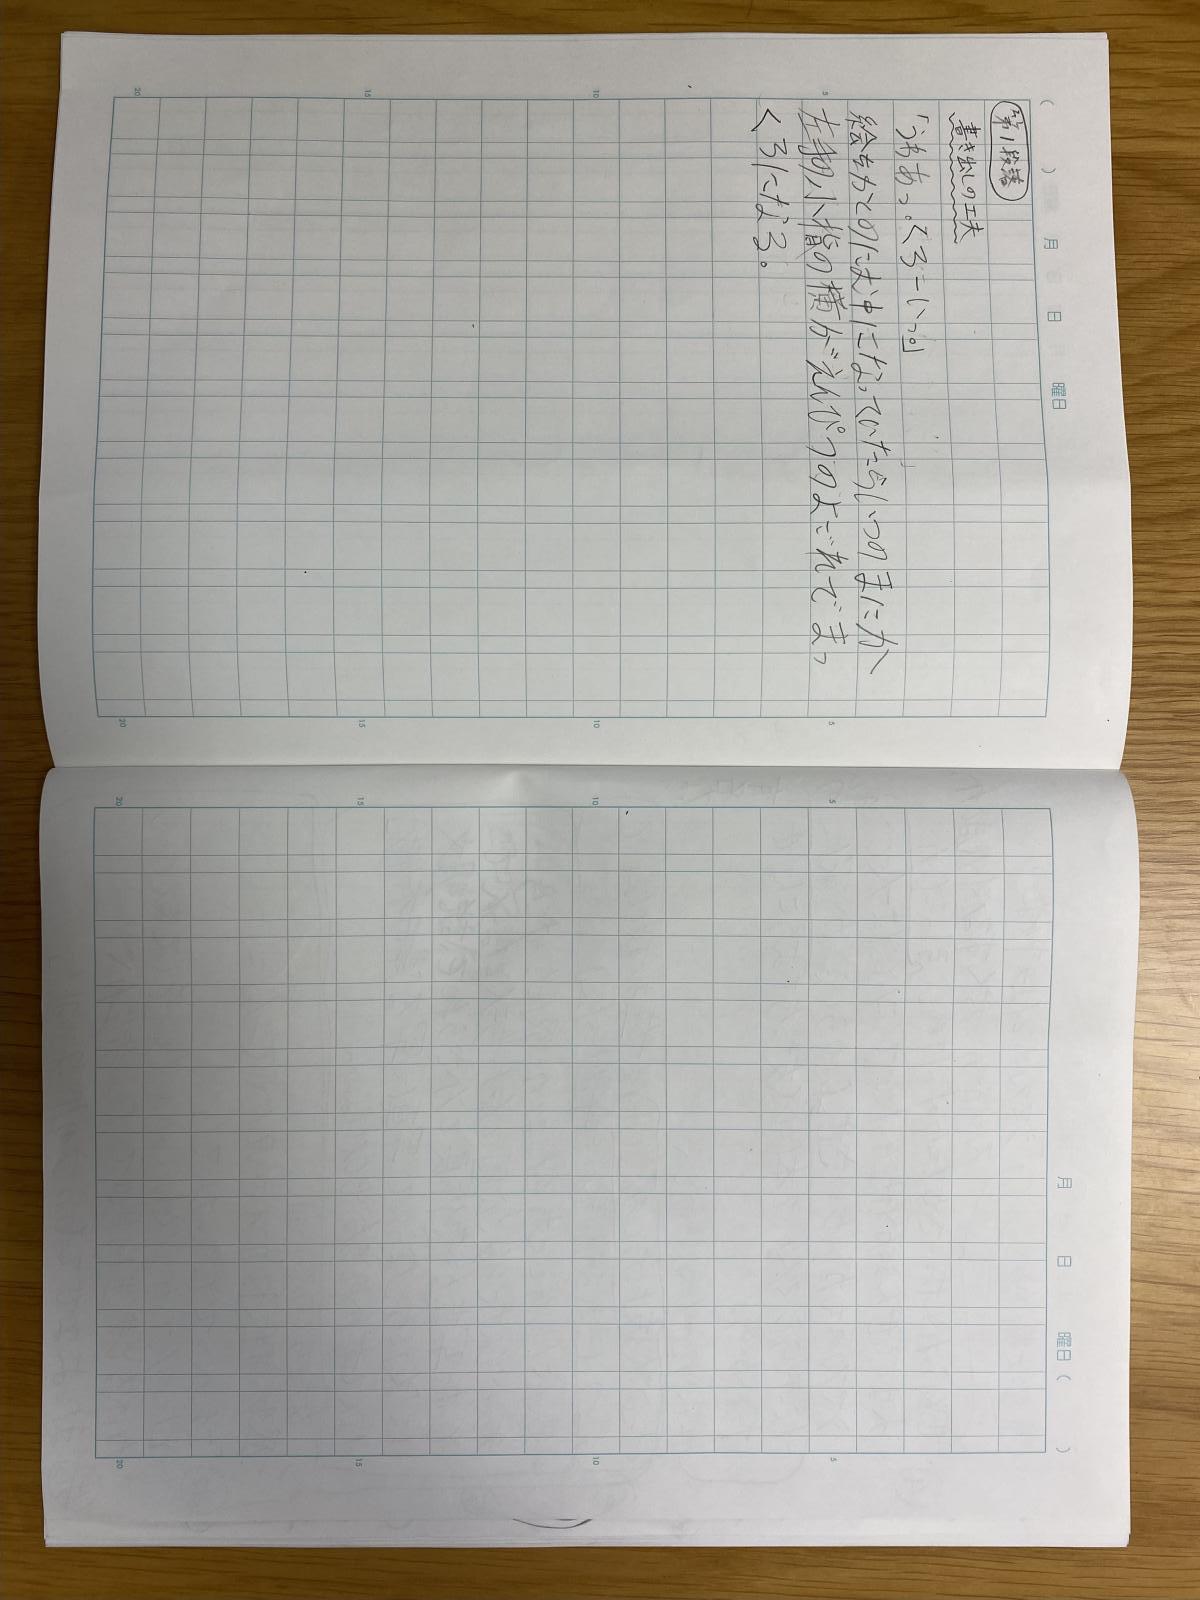 第1段落
書き出しの工夫
「うわあっ。くろーいっ。」
絵をかくのにむ中になっていたらいつのまにか
左手の小指の横がえんぴつのよごれでまっ
くろになる。
( ) 月 日 曜日
5 10 15 20
5 10 15 20
月 日 曜日 ( )
5 10 15 20
5 10 15 20